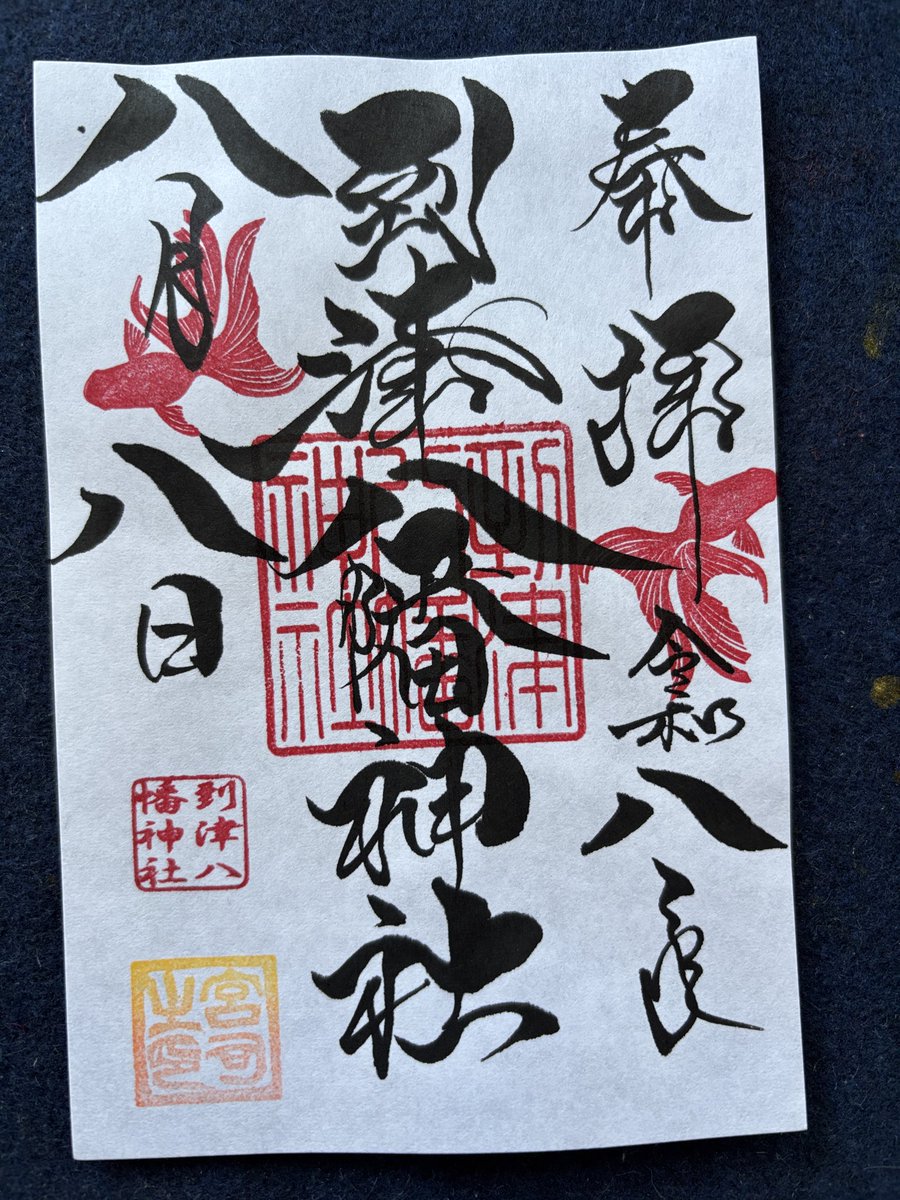 奉拝
令和八
到津八幡神社
到津
八幡
神社
八月八日
到津八
幡神社
宮司
之印